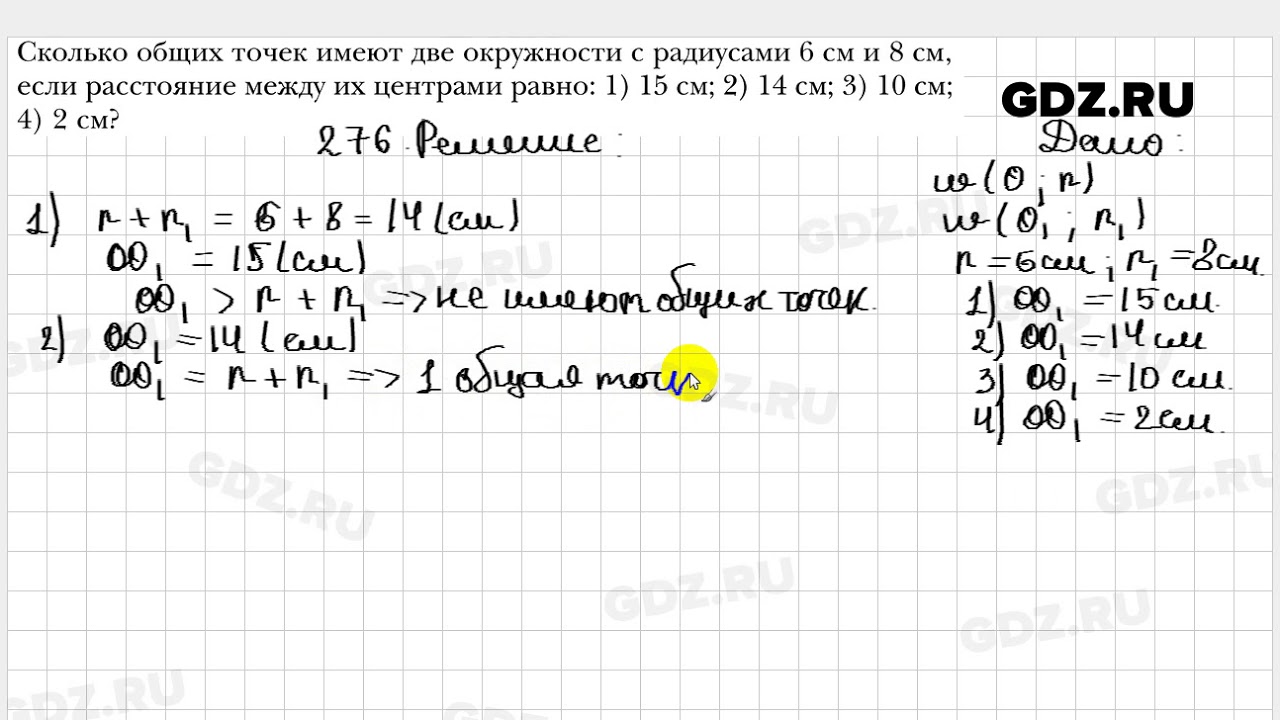 Сколько общих точек имеют две окружности с радиусами 6 см и 8 см,
если расстояние между их центрами равно: 1) 15 см; 2) 14 см; 3) 10 см;
4) 2 см?
GDZ.RU
276. Решение:
Дано:
w(O; r)
w(O₁; r₁)
r = 6 см; r₁ = 8 см.
1) OO₁ = 15 см.
2) OO₁ = 14 см
3) OO₁ = 10 см.
4) OO₁ = 2 см.
1) r + r₁ = 6 + 8 = 14 (см)
OO₁ = 15 (см)
OO₁ > r + r₁ => не имеют общих точек.
2) OO₁ = 14 (см)
OO₁ = r + r₁ => 1 общая точк
GDZ.RU
GDZ.RU
GDZ.RU
GDZ.RU
GDZ.RU
GDZ.RU
GDZ.RU
GDZ.RU
GDZ.RU
GDZ.RU
GDZ.RU